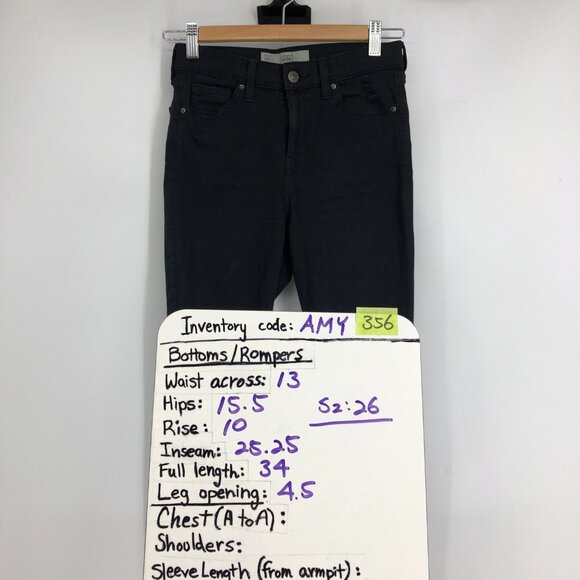 Inventory code: AMY 356
Bottoms/Rompers
Waist across: 13
Hips: 15.5
Sz: 26
Rise: 10
Inseam: 25.25
Full length: 34
Leg opening: 4.5
Chest (A to A):
Shoulders:
Sleeve Length (from armpit):